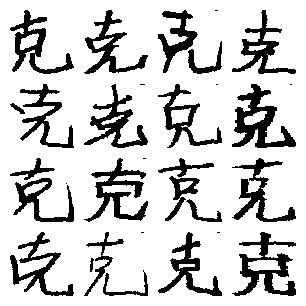 克克克克
克克克克
克克克克
克克克克